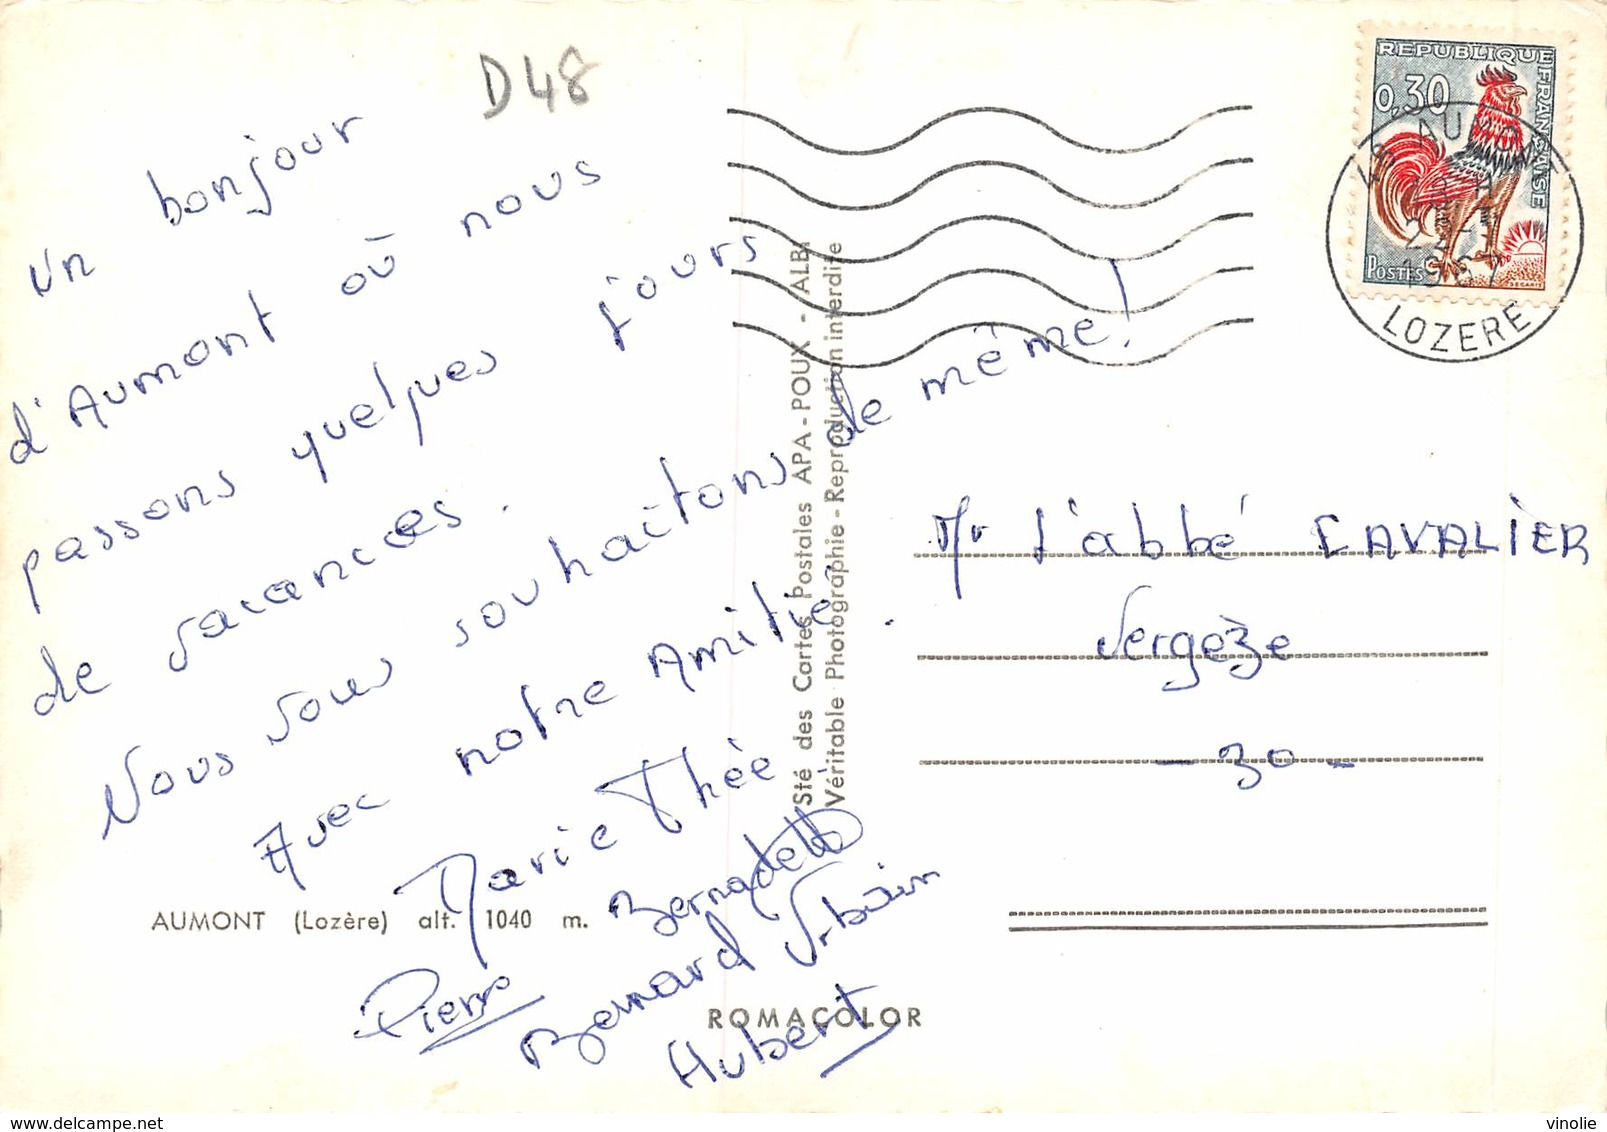 D48
un bonjour
d'Aumont où nous
passons quelques jours
de vacances.
Nous vous souhaitons de même!
Avec notre Amitié.
Marie Thée
Bernadette
Pierre
Bernard Urbain
Hubert
AUMONT (Lozère) alt. 1040 m.
ROMACOLOR
Sté des Cartes Postales APA-POUX - ALBI
Véritable Photographie - Reproduction interdite
REPUBLIQUE FRANÇAISE
0,30
POSTES
DECARIS
48 AUMONT
1967
LOZERE
Mr l'abbé CAVALIER
Vergèze
- 30 -
delcampe.net
vinolie